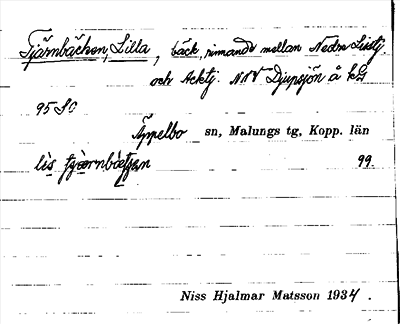 Tjärnbäcken, Lilla, bäck, rinnande mellan Nedre Lisstj.
och Acktj. NNV Djupsjön å kbl
95 SO
Äppelbo sn, Malungs tg, Kopp. län
lis 99.
Niss Hjalmar Matsson 1934.